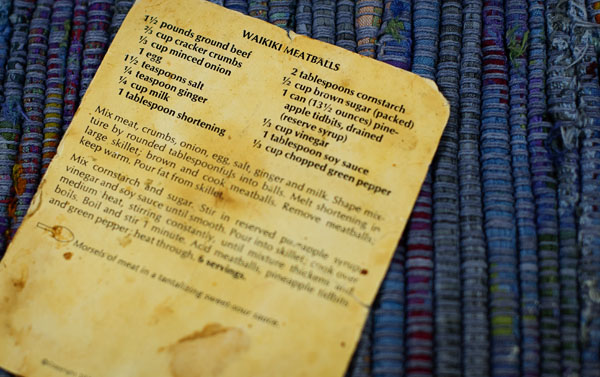 WAIKIKI MEATBALLS
1½ pounds ground beef
⅔ cup cracker crumbs
⅓ cup minced onion
1 egg
1½ teaspoons salt
¼ teaspoon ginger
¼ cup milk
1 tablespoon shortening
2 tablespoons cornstarch
½ cup brown sugar (packed)
1 can (13½ ounces) pine-
apple tidbits, drained
(reserve syrup)
⅓ cup vinegar
1 tablespoon soy sauce
⅓ cup chopped green pepper
Mix meat, crumbs, onion, egg, salt, ginger and milk. Shape mix-
ture by rounded tablespoonfuls into balls. Melt shortening in
large skillet; brown and cook meatballs. Remove meatballs,
keep warm. Pour fat from skillet.
Mix cornstarch and sugar. Stir in reserved pineapple syrup,
vinegar and soy sauce until smooth. Pour into skillet; cook over
medium heat, stirring constantly, until mixture thickens and
boils. Boil and stir 1 minute. Add meatballs, pineapple tidbits
and green pepper; heat through. 6 servings.
Morsels of meat in a tantalizing sweet-sour sauce.
©Copyright